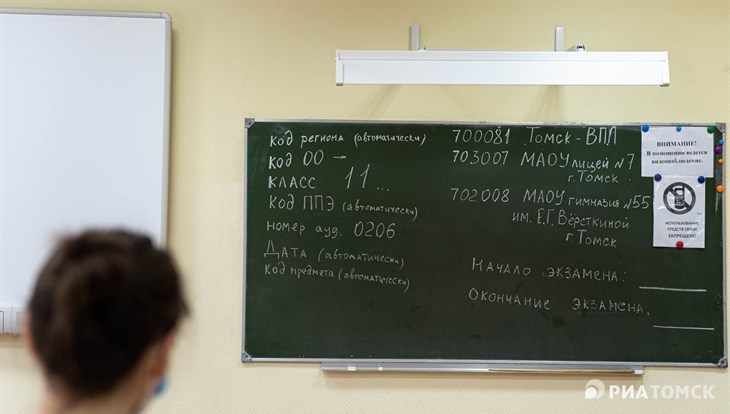 код региона (автоматически)
код ОО –
класс 11 ...
Код ППЭ (автоматически)
номер ауд. 0206
Дата (автоматически)
Код предмета (автоматически)
700081 Томск-ВПЛ
703007 МАОУ лицей №7
г. Томск
702008 МАОУ гимназия №55
им. Е.Г. Вёрсткиной
г Томск
Начало экзамена:
Окончание экзамена:
ВНИМАНИЕ!
В помещении ведется
видеонаблюдение.
ИСПОЛЬЗОВАНИЕ
СРЕДСТВ СВЯЗИ
ЗАПРЕЩЕНО!
РИАТОМСК